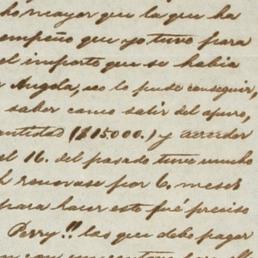 ho mayor que la que ha
empeño que yo tuve para
el importe que se habia
Angola, no lo pude conseguir,
saber como salir del apuro,
antidad ($15.000.) y acreedor
el 16. del pasado tuve mucho
renovase por 6, meses
para hacer esto fué preciso
Perry!! las que debo pagar